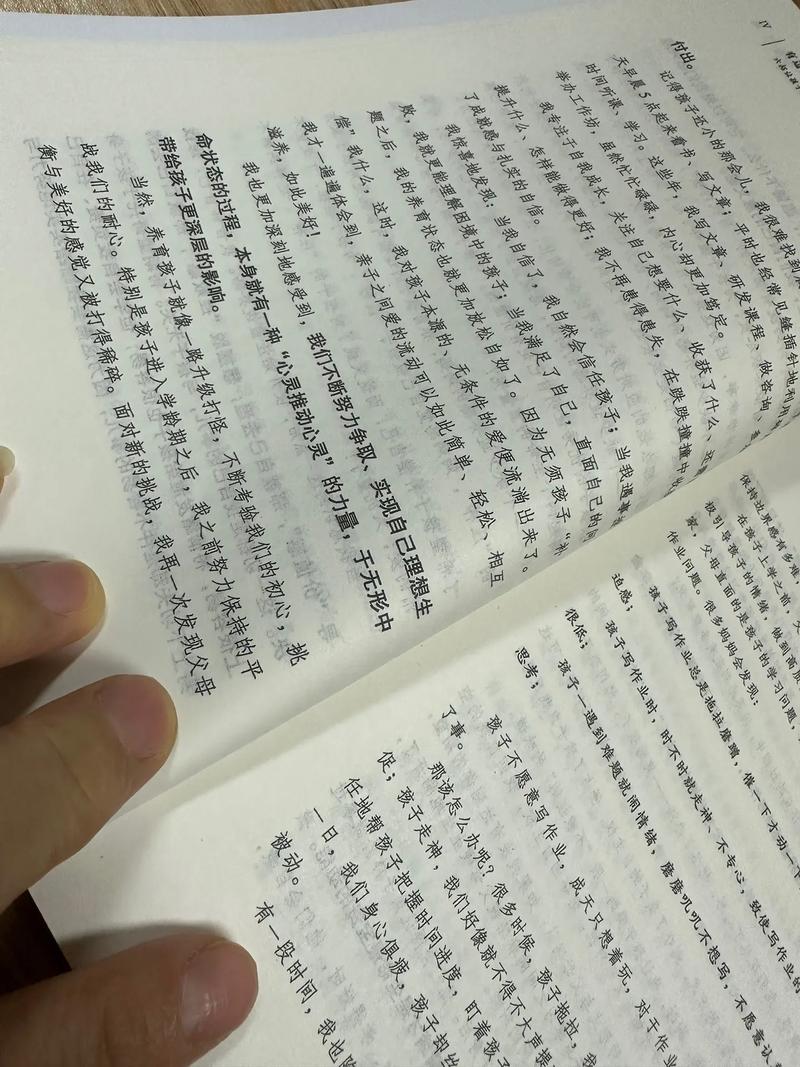 IV
付出。
记得孩子还小的那会儿，我很难找到
天早晨5点起来看书、写文章；平时也经常见缝插针地利用
时间听课、学习。这些年，我写文章、研发课程、做咨询、
举办工作坊，虽然忙忙碌碌，内心却更加笃定。
我专注于自我成长，关注自己想要什么、收获了什么、还
提升什么、怎样能做得更好；我不再患得患失，在跌跌撞撞中
了成就感与扎实的自信。
我惊喜地发现：当我自信了，我自然会信任孩子；当我遇
，我就更能理解困境中的孩子；当我满足了自己，直面自己的问
题之后，我的养育状态也就更加放松自如了。因为无须孩子“补
偿”我什么，这时，我对孩子本源的、无条件的爱便流淌出来了。
我才一遍遍体会到，亲子之间爱的流动可以如此简单、轻松、相互
滋养，如此美好！
我也更加深刻地感受到，我们不断努力争取、实现自己理想生
命状态的过程，本身就有一种“心灵推动心灵”的力量，于无形中
带给孩子更深层的影响。
当然，养育孩子就像一路升级打怪，不断考验我们的初心，挑
战我们的耐心。特别是孩子进入学龄期之后，我之前努力保持的平
衡与美好的感觉又被打得稀碎。面对新的挑战，我再一次发现父母
保持边界感有多难
在孩子上学之前，
极引导孩子的情绪，做到高质
，父母直面的是孩子的学习问题，
作业问题。很多妈妈会发现：
孩子写作业总是拖拉磨蹭，催一下才动一下
迫感；
孩子写作业时，时不时就走神、不专心，致使写作业的
很低；
孩子一遇到难题就闹情绪，磨磨叽叽不想写，不愿意认
思考；
孩子不愿意写作业，成天只想着玩，对于作业
了事。
那该怎么办呢？很多时候，孩子拖拉，我
促；孩子走神，我们好像就不得不大声提
任地帮孩子把握时间进度，盯着孩
一日，我们身心俱疲，孩子却
被动。
有一段时间，我也